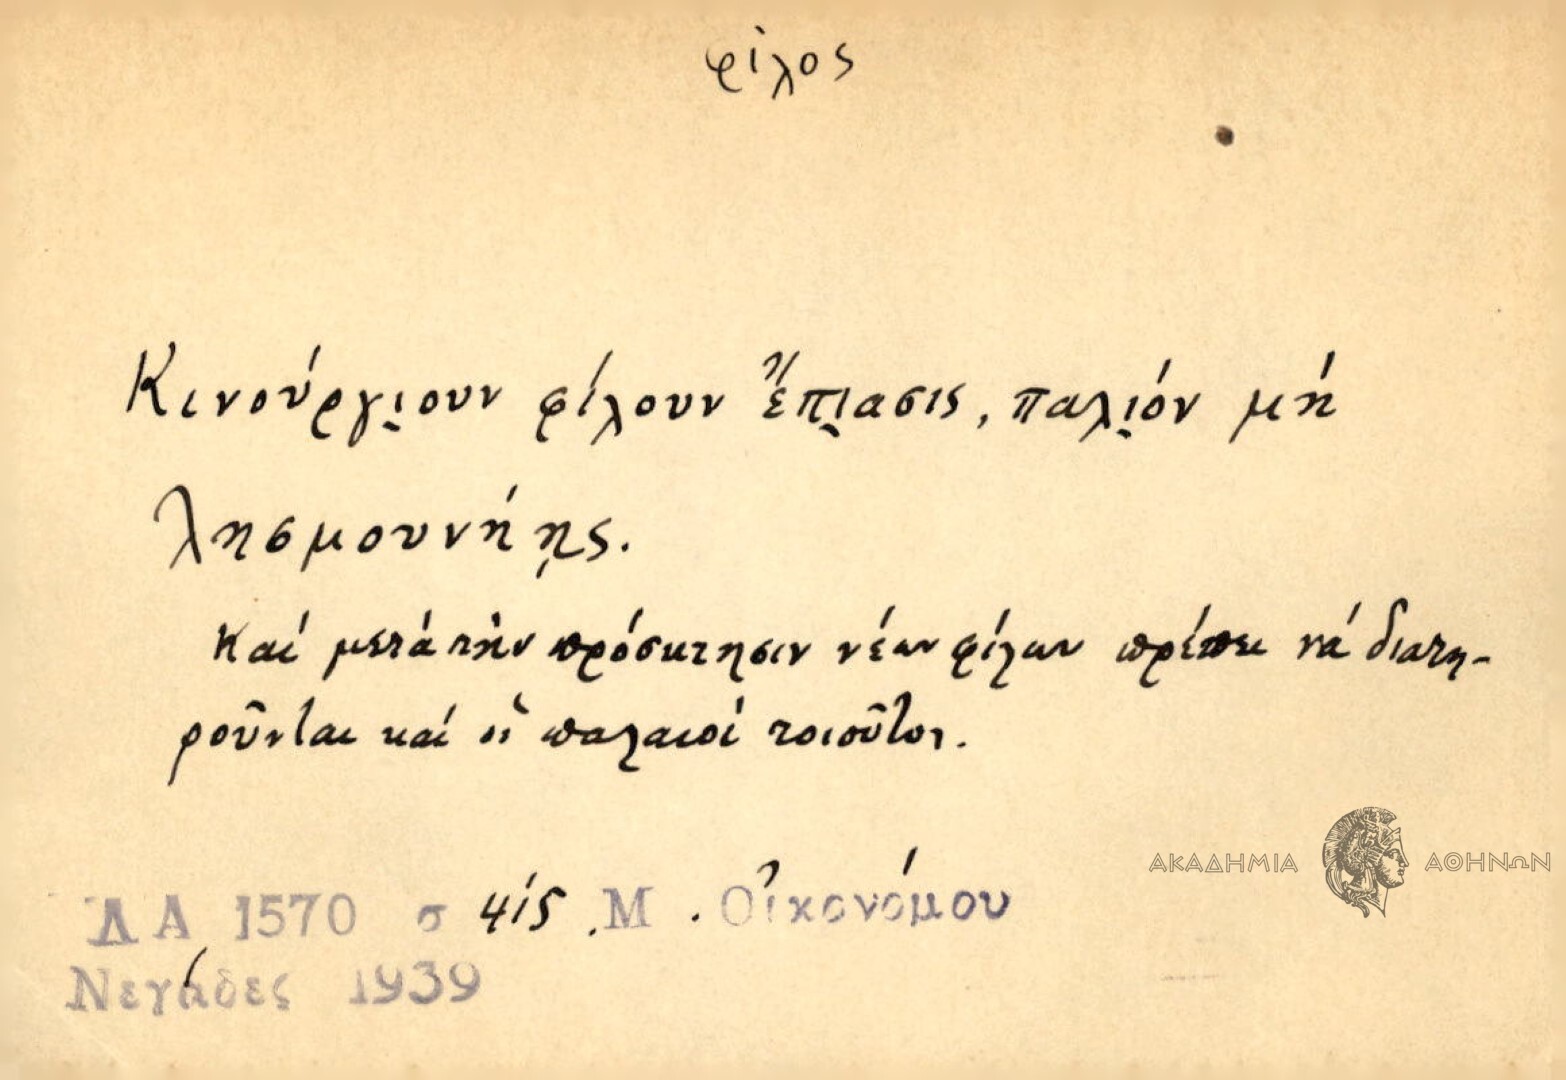 φίλος
Κινούργι̮ουν φίλουν ἔπι̮ασις, παλι̮όν μή
λησμουνήῃς.
Καί μετά τήν πρόσκτησιν νέων φίλων πρέπει νά διατη-
ροῦνται καί οἱ παλαιοί τοιοῦτοι.
ΑΚΑΔΗΜΙΑ ΑΘΗΝΩΝ
ΛΑ 1570 σ Μ. Οἰκονόμου
Νεγάδες 1939